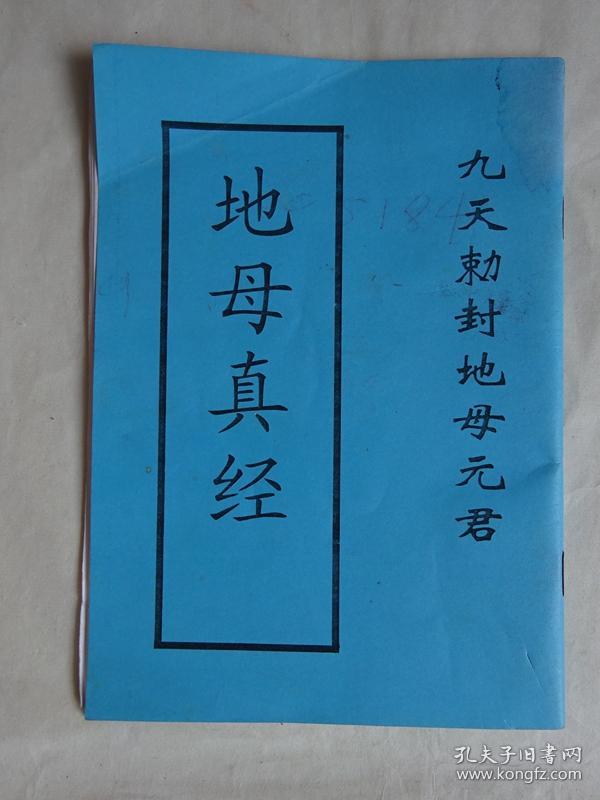 九天勅封地母元君
地母真经
孔夫子旧書网
www.kongfz.com